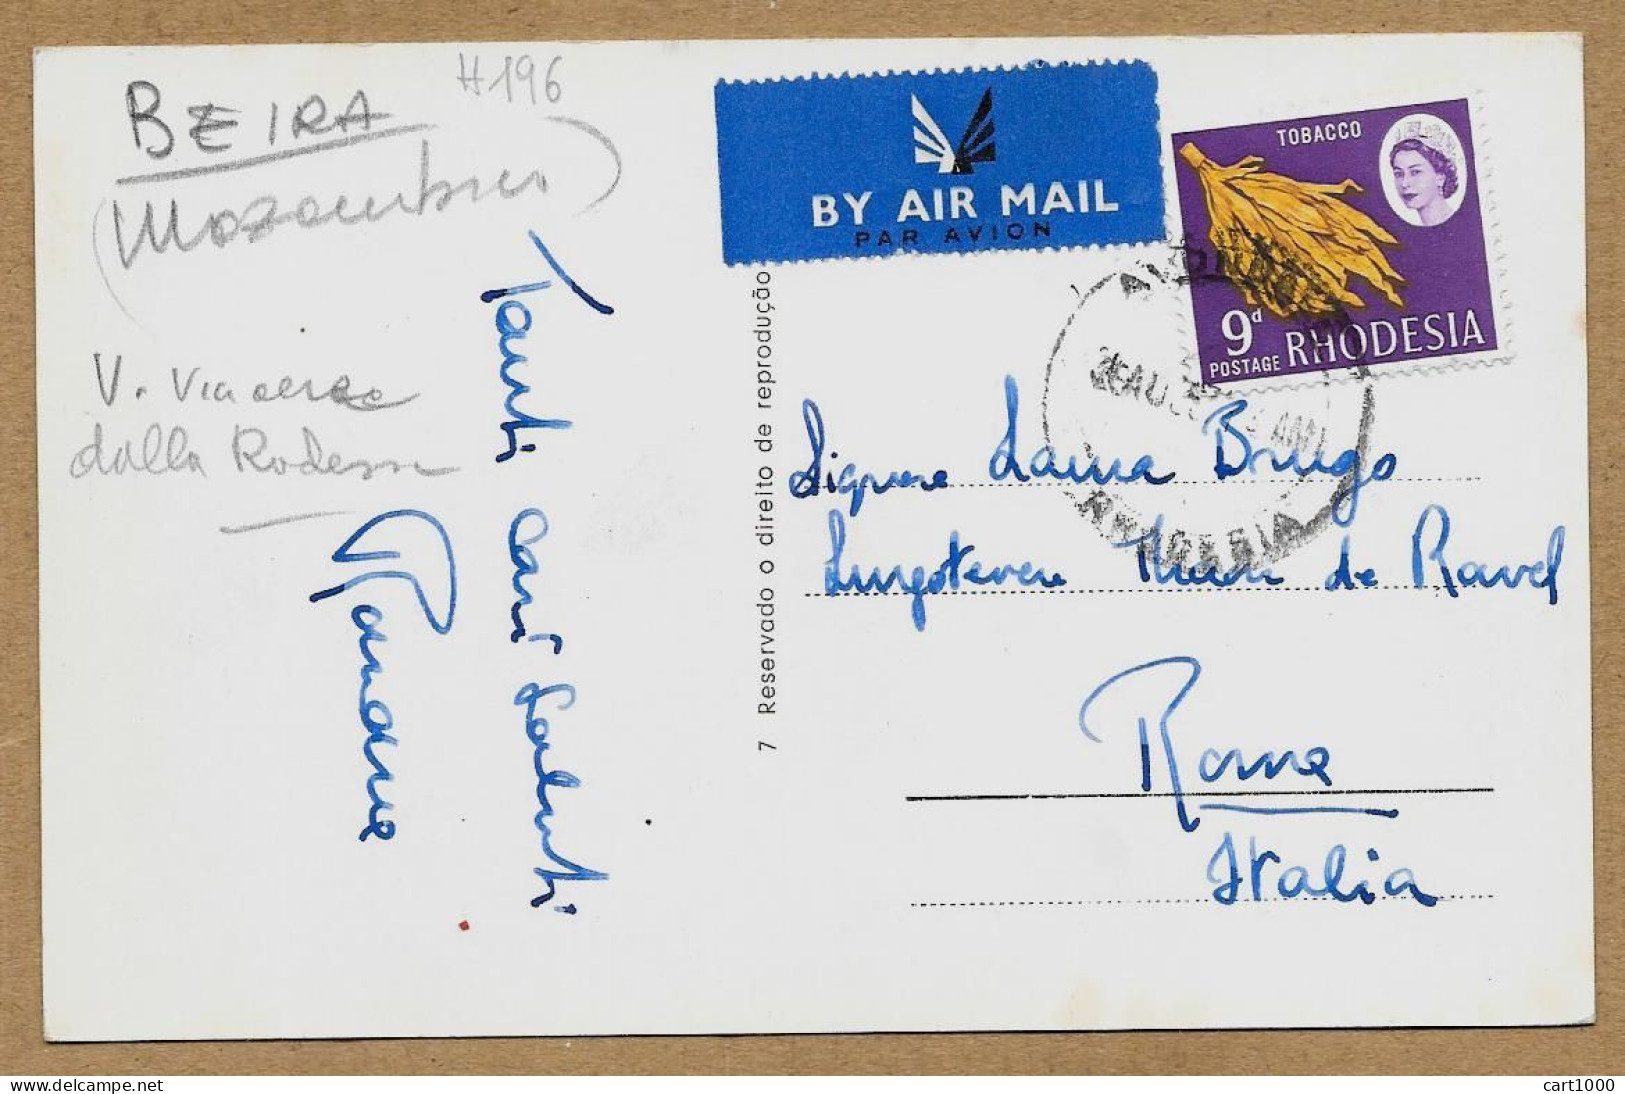 H196
BEIRA
(Mozambico)
V. Via aerea
dalla Rodesia
Tanti cari saluti
Romano
7 Reservado o direito de reprodução
BY AIR MAIL
PAR AVION
TOBACCO
9d
POSTAGE RHODESIA
Laura Brugo
Lungotevere de Ravel
Roma
Italia
cart1000
delcampe.net